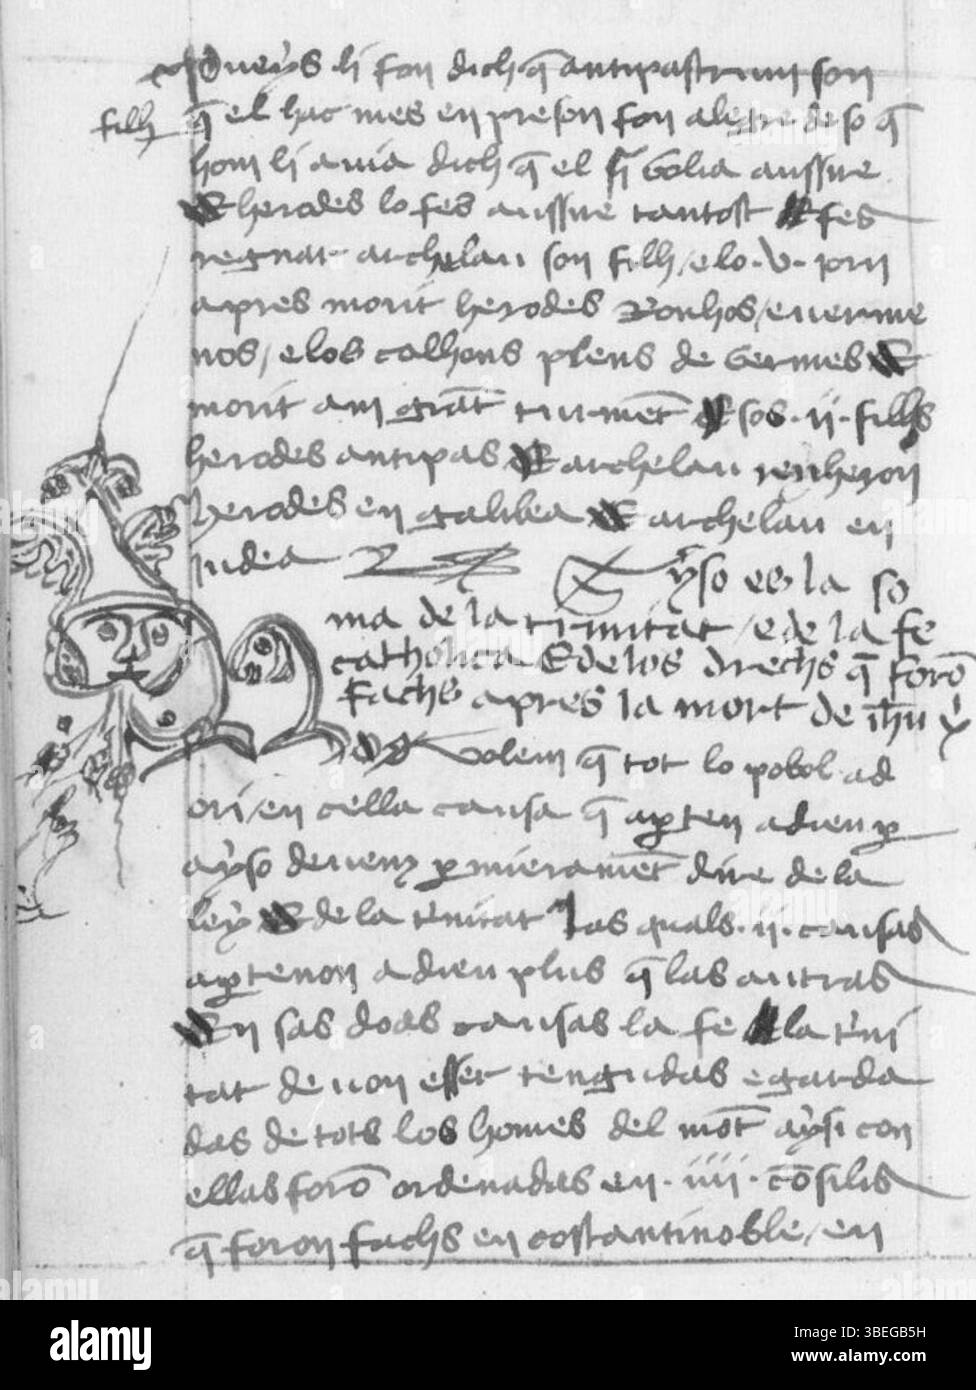 dich q̄ antipastrum son
filh q̄ el hac mes en preson fon alegre de so q̄
hom li auia dich q̄ el si uolia aussire
E herodes lo fes aussire tantost E fes
regnar archelau son filh / e lo .v. jorn
apres morit herodes Ronhos / e uerme
nos / e los colhons plens de uermes E
morit am grāt turmēt E sos .ii. filhs
herodes antipas E archelau renheron
herodes en galilea E archelau en
judea
Ayso es la so
ma de la trinitat / e de la fe
catholica E de los drechs q̄ forō
fachs apres la mort de ih̄u x̄
uolem q̄ tot lo pobol ad
ori / en cella causa q̄ aꝑten a dieu ꝑ
ayso deuem ꝑmieramēt dire de la
ley E de la t'nitat las quals .ii. causas
aꝑtenon a dieu plus q̄ las autras
En sas doas causas la fe E la t'ni
tat deuon esser tengudas e garda
das de tots los homes del mōt aysi con
ellas forō ordenadas en .iiii. cōsilis
q̄ feron fachs en costantinoble / en
alamy
Image ID: 3BEGB5H
www.alamy.com